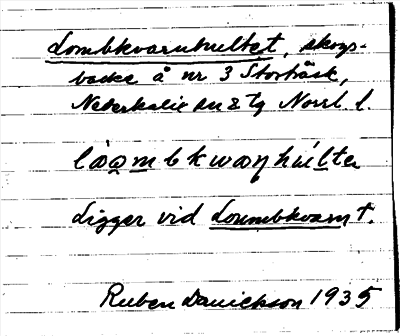 Lombkvarnhultet, skogs-
backe å nr 3 Storträsk,
Nederkalix sn & tg Norrb. l.
Ligger vid Lombkvarnt.
Ruben Danielsson 1935